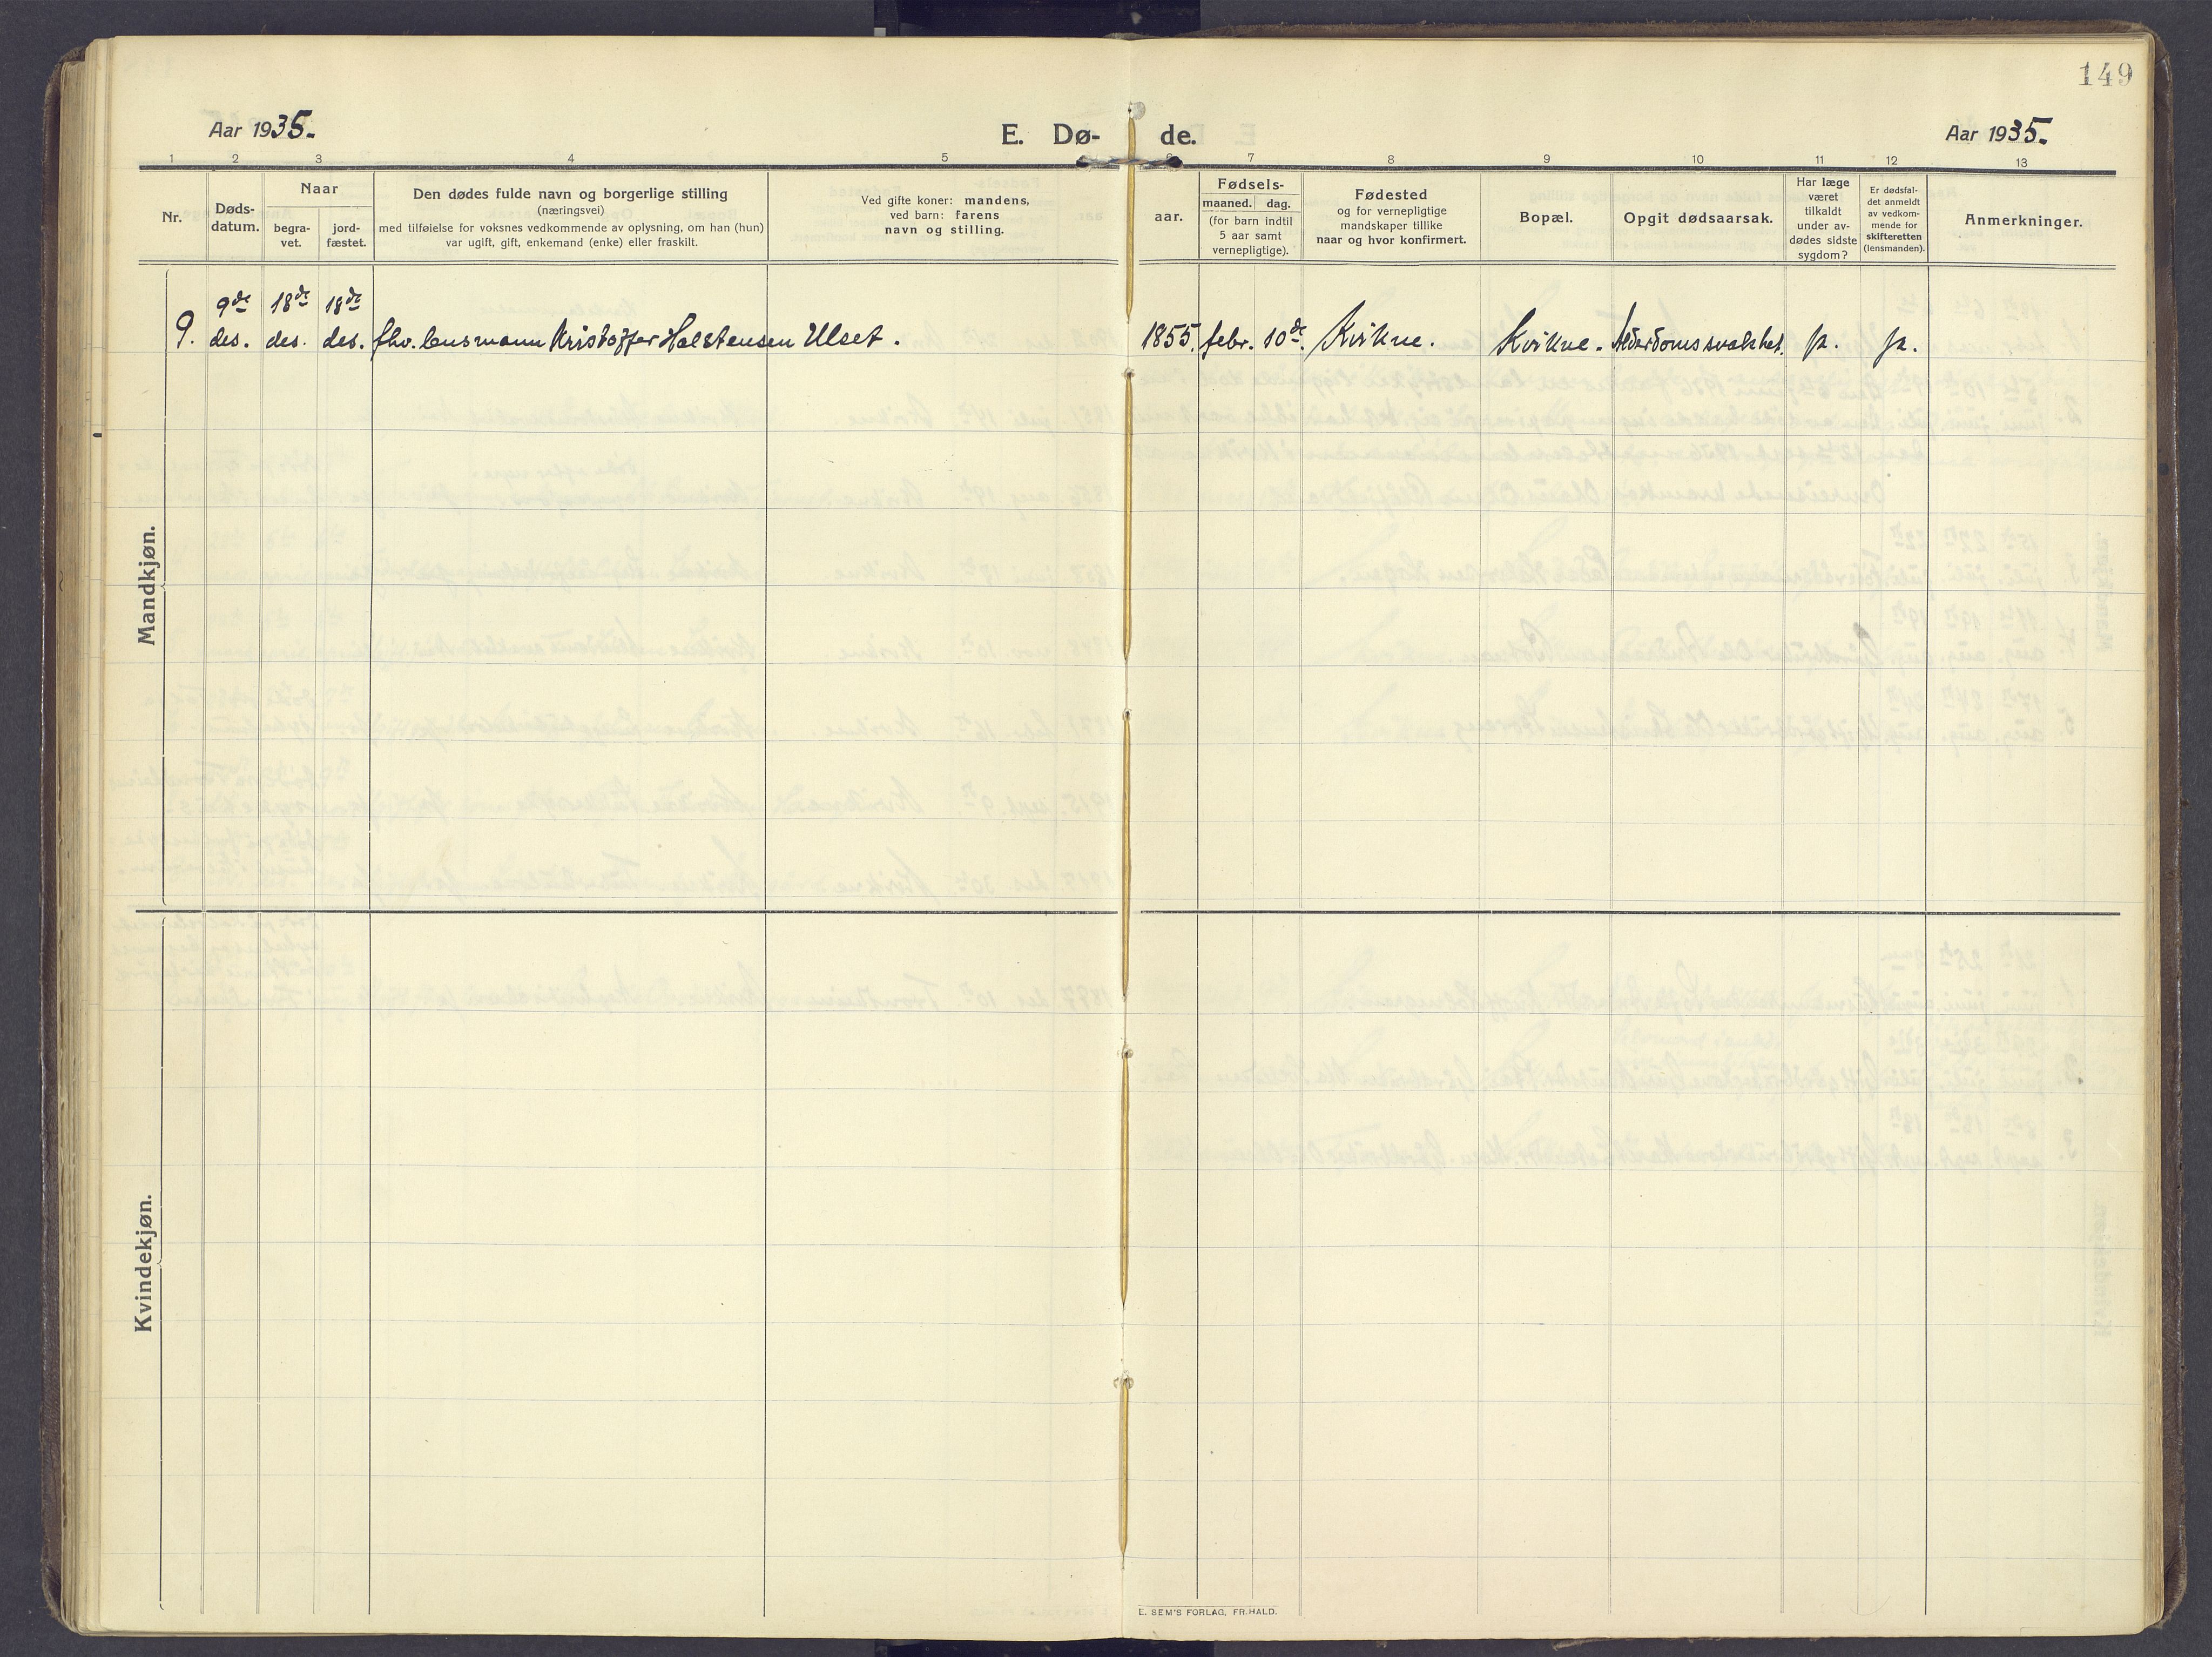 149
Aar 1935.
E. Dø-
de.
Aar 1935.
1 2 3 4 5 6 7 8 9 10 11 12 13
Nr.
Døds-
datum.
Naar
begra-
vet.
jord-
fæstet.
Den dødes fulde navn og borgerlige stilling
(næringsvei)
med tilføielse for voksnes vedkommende av oplysning, om han (hun)
var ugift, gift, enkemand (enke) eller fraskilt.
Ved gifte koner: mandens,
ved barn: farens
navn og stilling.
aar.
Fødsels-
maaned. dag.
(for barn indtil
5 aar samt
vernepligtige).
Fødested
og for vernepligtige
mandskaper tillike
naar og hvor konfirmert.
Bopæl.
Opgit dødsaarsak.
Har læge
været
tilkaldt
under av-
dødes sidste
sygdom?
Er dødsfal-
det anmeldt
av vedkom-
mende for
skifteretten
(lensmanden).
Anmerkninger.
9de 18de 18de
9. des. des. des. fhv. lensmann Kristoffer Halstensen Ulset. 1855. febr. 10de. Kvikne. Kvikne. Alderdomssvakhet. ja. ja.
Mandkjøn.
Kvindekjøn.
E. SEM'S FORLAG, FR.HALD.